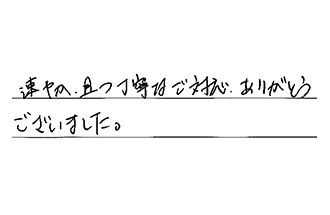 速やか、且つ丁寧なご対応、ありがとう
ございました。